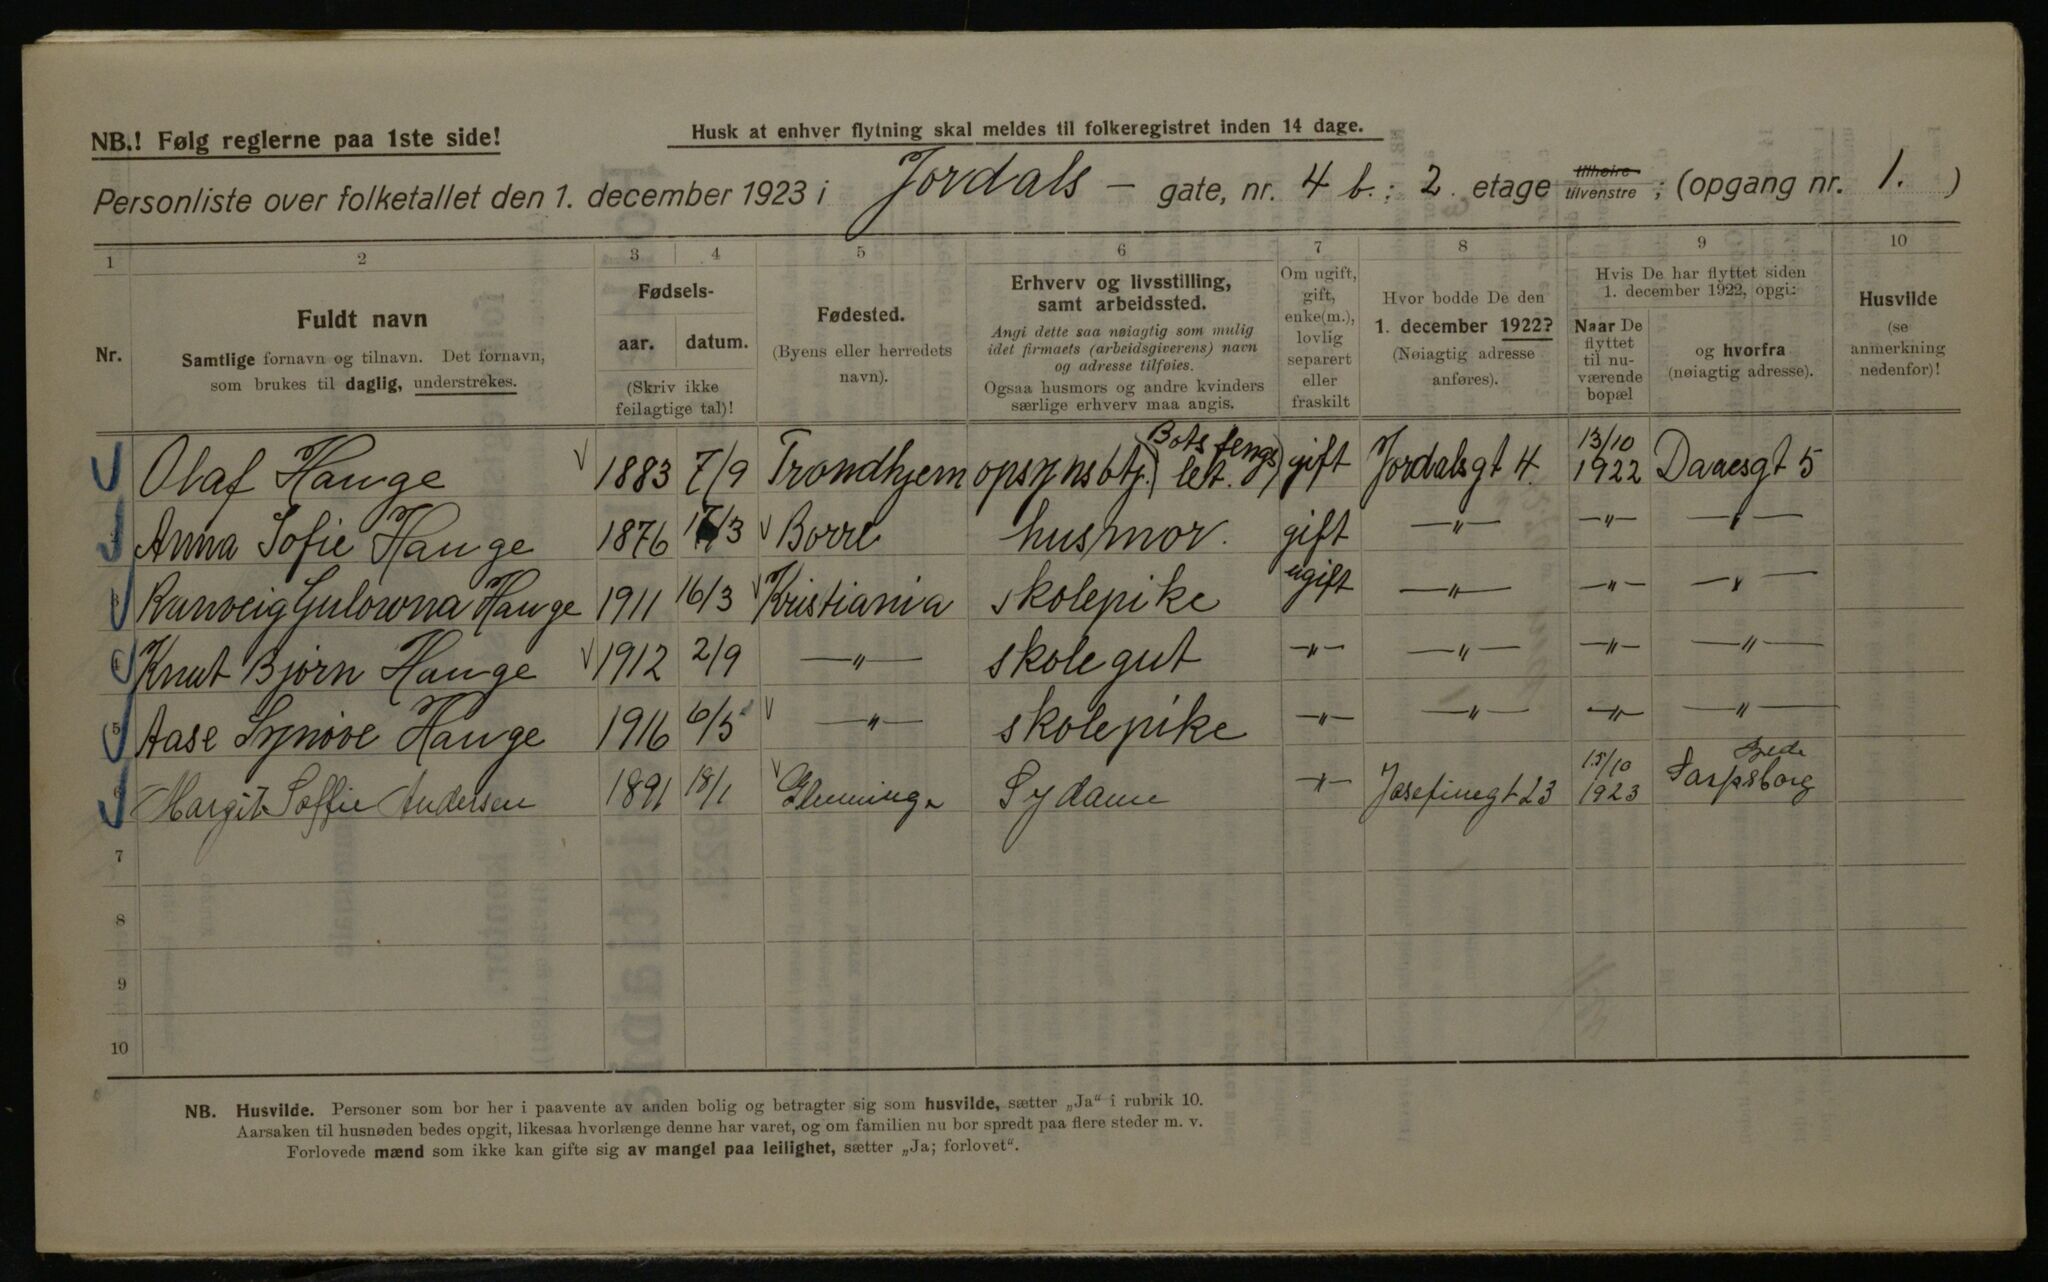 NB.! Følg reglerne paa 1ste side!
Husk at enhver flytning skal meldes til folkeregistret inden 14 dage.
Personliste over folketallet den 1. december 1923 i Jordals — gate, nr. 4 b.; 2. etage tilhøire tilvenstre; (opgang nr. 1. )
1 2 3 4 5 6 7 8 9 10
Nr.
Fuldt navn
Samtlige fornavn og tilnavn. Det fornavn,
som brukes til daglig, understrekes.
Fødsels-
aar. datum.
(Skriv ikke
feilagtige tal)!
Fødested.
(Byens eller herredets
navn).
Erhverv og livsstilling,
samt arbeidssted.
Angi dette saa nøiagtig som mulig
idet firmaets (arbeidsgiverens) navn
og adresse tilføies.
Ogsaa husmors og andre kvinders
særlige erhverv maa angis.
Om ugift,
gift,
enke(m.),
lovlig
separert
eller
fraskilt
Hvor bodde De den
1. december 1922?
(Nøiagtig adresse
anføres).
Hvis De har flyttet siden
1. december 1922, opgi:
Naar De
flyttet
til nu-
værende
bopæl
og hvorfra
(nøiagtig adresse).
Husvilde
(se
anmerkning
nedenfor)!
Olaf Hauge 1883 7/9 Trondhjem opsynsbtj. Bots fengs let. gift Jordalsgt 4. 13/10 1922 Daaesgt 5
Anna Sofie Hauge 1876 /3 Borre husmor. gift —"— —"— —"—
Ranveig Gulowna Hauge 1911 16/3 Kristiania skolepike ugift —"— —"— —"—
Knut Bjørn Hauge 1912 2/9 —"— skolegut —"— —"— —"— —"—
5 Aase Synøve Hauge 1916 6/5 —"— skolepike —"— —"— —"— —"—
Margit Soffie Andersen 1891 18/1 Glemminge Sydame —"— Josefinegt 23 15/10 1923 Sarpsborg
7
8
9
10
NB. Husvilde. Personer som bor her i paavente av anden bolig og betragter sig som husvilde, sætter „Ja“ i rubrik 10.
Aarsaken til husnøden bedes opgit, likesaa hvorlænge denne har varet, og om familien nu bor spredt paa flere steder m. v.
Forlovede mænd som ikke kan gifte sig av mangel paa leilighet, sætter „Ja; forlovet“.